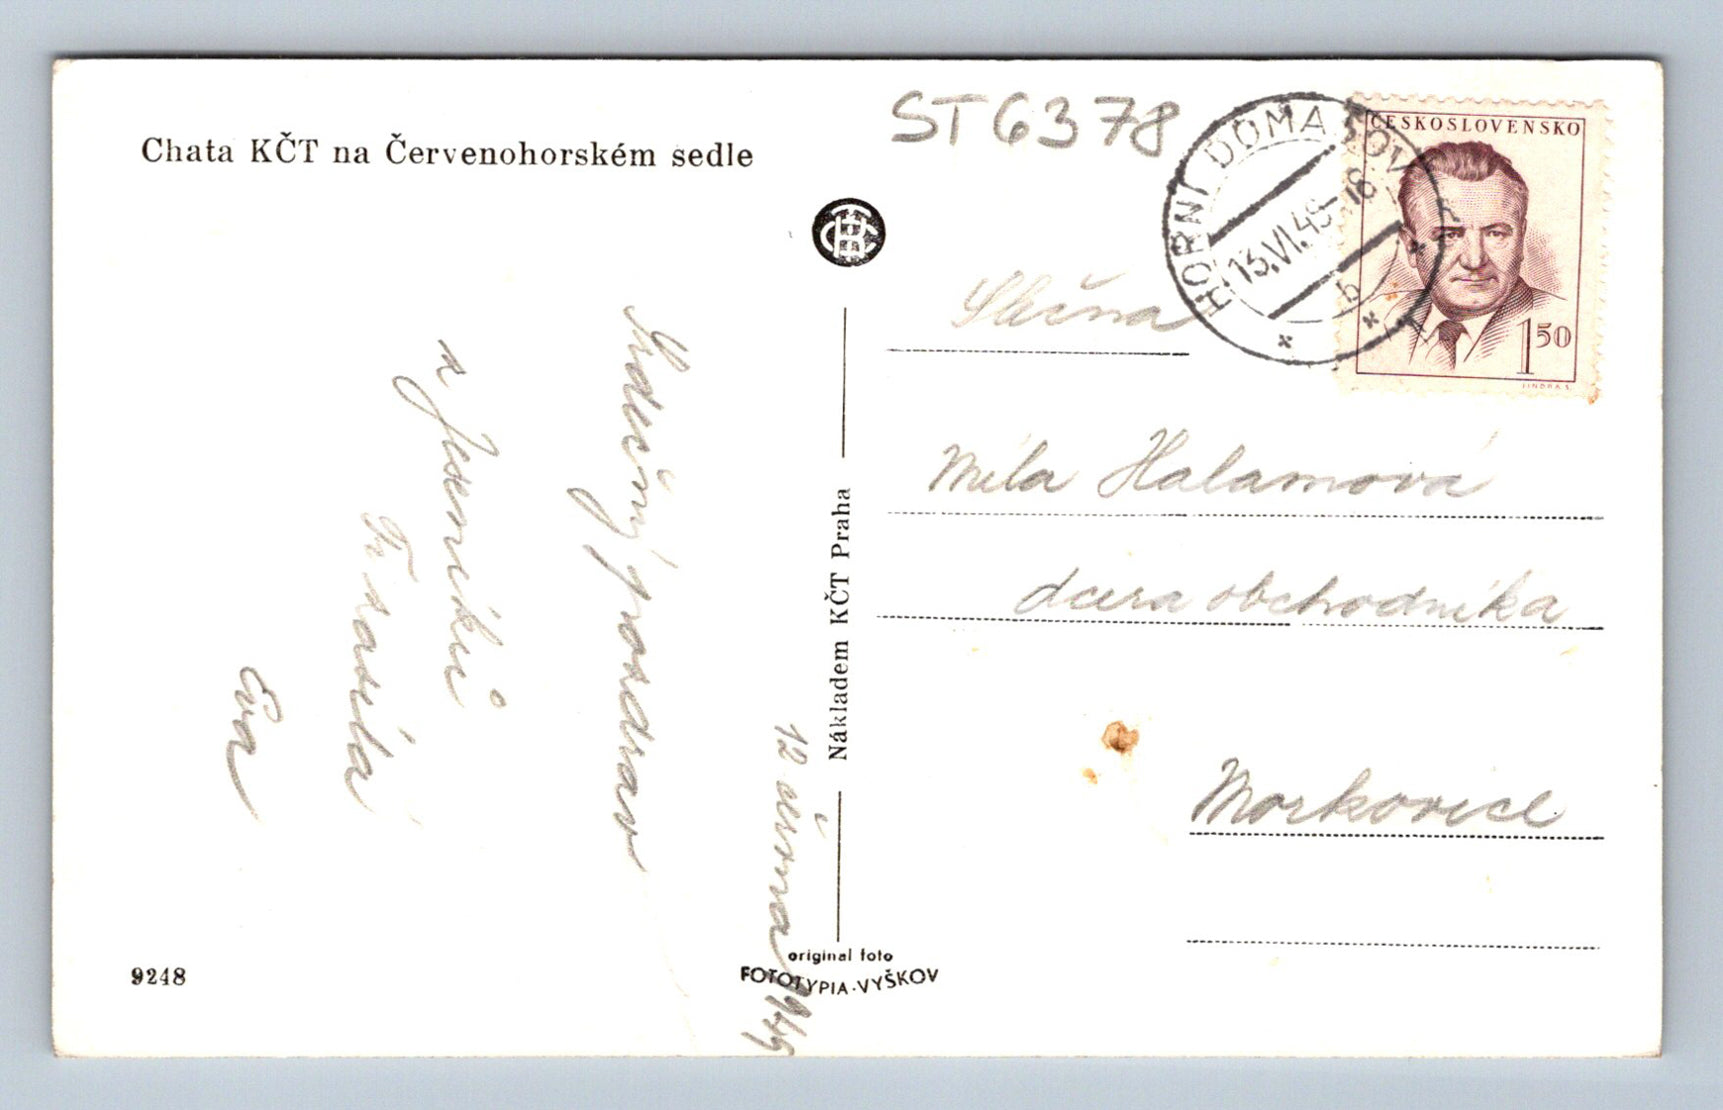 Chata KČT na Červenohorském sedle
ST 6378
ČESKOSLOVENSKO
HORNÍ DOMAŠOV
13.VI.49-18
b
1 50
JINDRA S.
Slečna
Míla Halamová
dcera obchodníka
Morkovice
Nákladem KČT Praha
12 června 1949
Srdečný pozdrav
z Jeseníků
Ti zasílá
Eva
original foto
FOTOTYPIA-VYŠKOV
9248